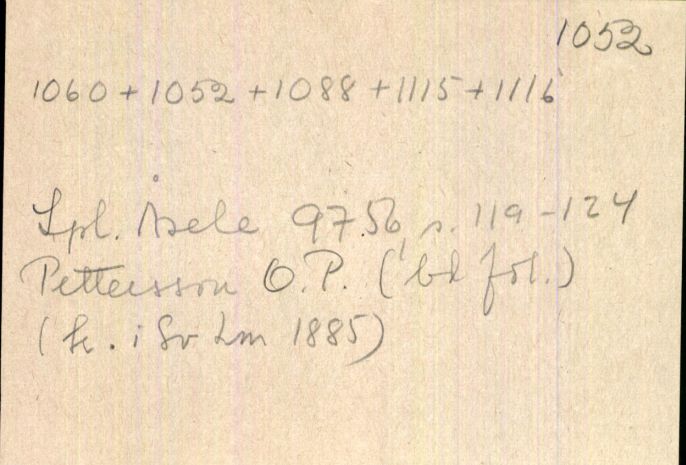 1052
1060 + 1052 + 1088 + 1115 + 1116
Lpl. Åsele 975b, s. 119-124
Pettersson O.P. (bd fol.)
(tr. i Sv Lm 1885)